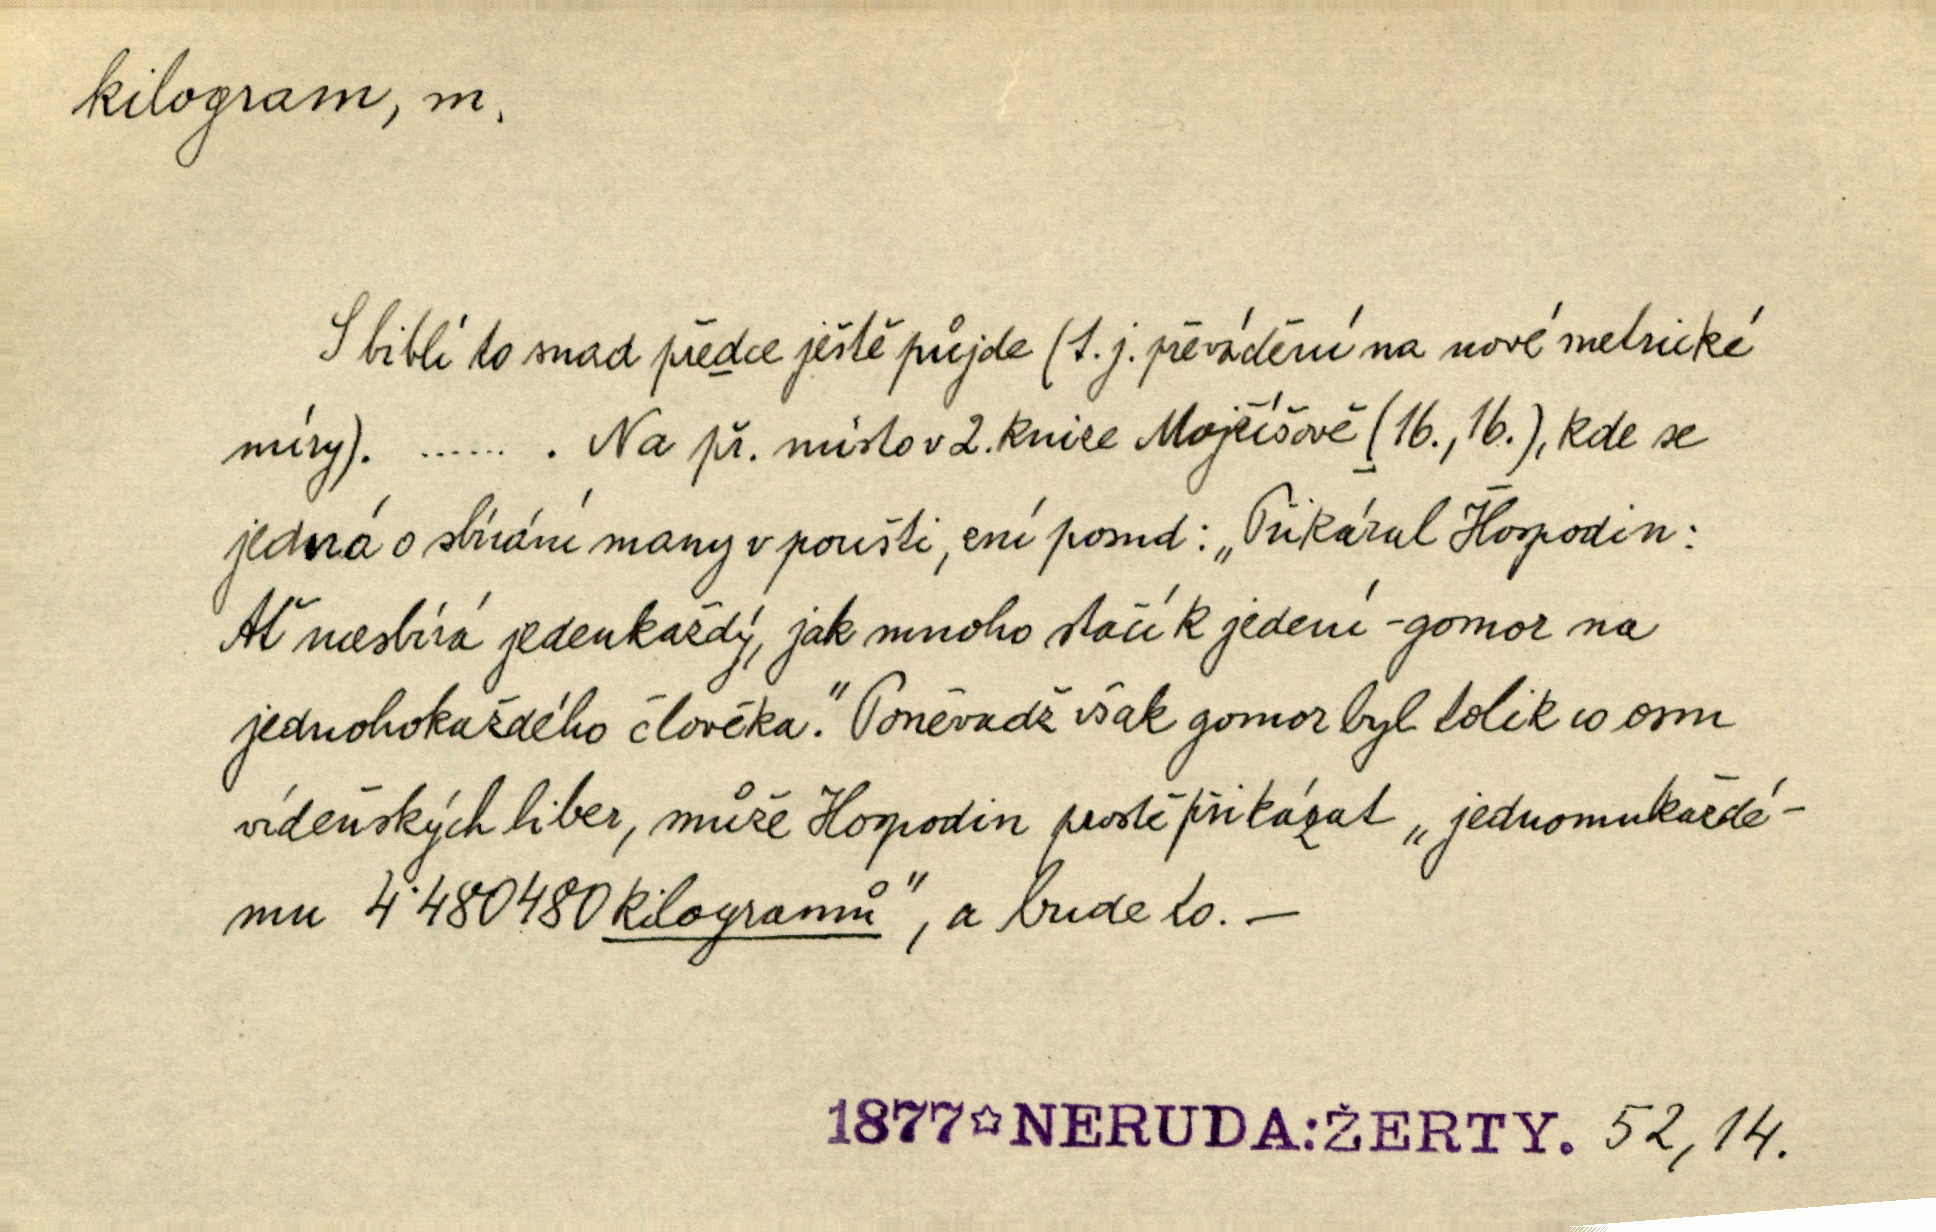 kilogram, m.
S biblí to snad předce ještě půjde (t. j. převádění na nové metrické
míry). ...... . Na př. místo v 2. knize Mojžíšově (16., 16.), kde se
jedná o sbírání many v poušti, zní posud: „Přikázal Hospodin:
Ať nasbírá jedenkaždý, jak mnoho stačí k jedení - gomor na
jednohokaždého člověka." Poněvadž však gomor byl tolik co osm
vídeňských liber, může Hospodin prostě přikázat „jednomukaždé-
mu 4·480480 kilogramů", a bude to. —
1877☆NERUDA:ŽERTY. 52, 14.